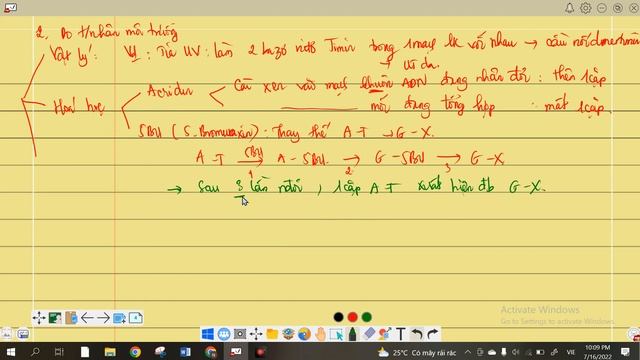 2. Do t/nhân môi trường
Vật lý: VD: Tia UV: làm 2 bazơ nitơ Timin trong 1 mạch lk với nhau → cầu nối dimer timin
→ ưd da.
Hoá học
Acridin
Cài xen vào mạch khuôn ADN đang nhân đôi: thêm 1 cặp
mới đang tổng hợp : mất 1 cặp.
5BU (5-Bromuraxin): Thay thế A-T → G-X.
A-T 5BU → A-5BU. → G-5BU → G-X
1 2 3
→ Sau 3 lần nđôi, 1 cặp A-T xuất hiện đb G-X.
Activate Windows
Go to Settings to activate Windows.
25°C Có mây rải rác
10:09 PM
7/16/2022